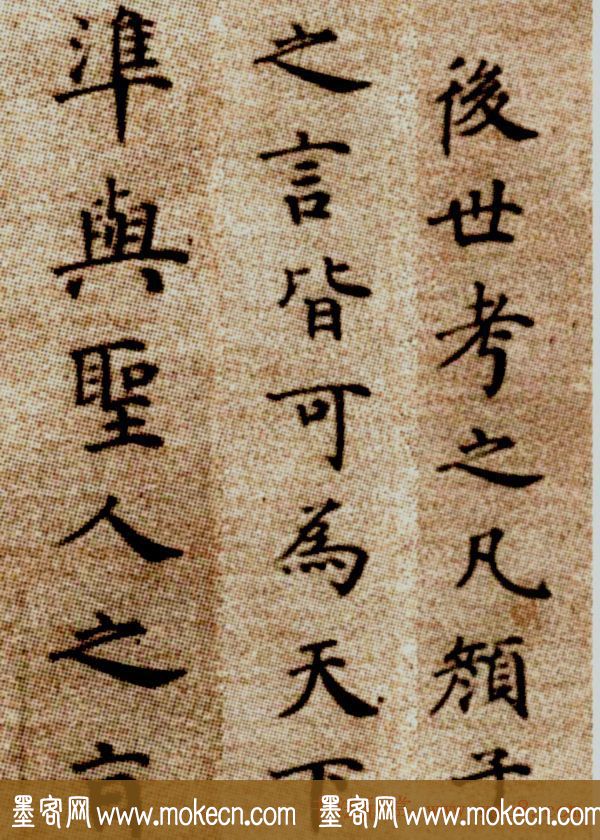 後世考之凡顔子
之言皆可為天下
準與聖人之言
墨客网 www.mokecn.com 墨客网 www.mokecn.com